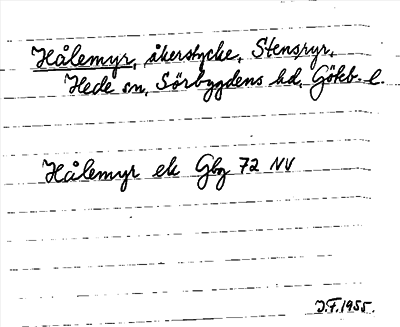 Hålemyr, åkerstycke, Stensryr,
Hede sn, Sörbygdens hd. Göteb. l.
Hålemyr ek Gbg 72 NV
J.F. 1955.